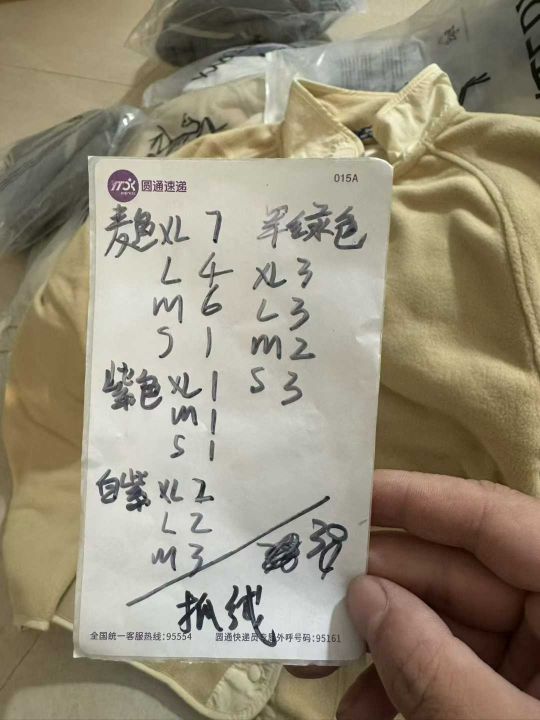 圆通速递
015A
麦色 XL 7
L 4
M 6
S 1
紫色 XL 1
M 1
S 1
白紫 XL 2
L 2
M 3
军绿色
XL 3
L 3
M 2
S 3
39
抓绒
全国统一客服热线:95554
圆通快递员专属外呼号码:95161